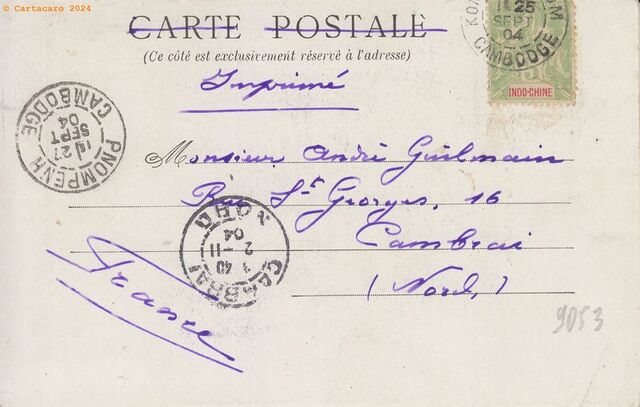 © Cartacaro 2024
CARTE POSTALE
(Ce côté est exclusivement réservé à l'adresse)
Imprimé
25
SEPT
04
CAMBODGE
5
INDO-CHINE
PNOMPENH
27
SEPT
04
CAMBODGE
Monsieur André Guilmain
Rue St Georges, 16
Cambrai
(Nord)
France
CAMBRAI
40
2 -11
04
NORD
9053